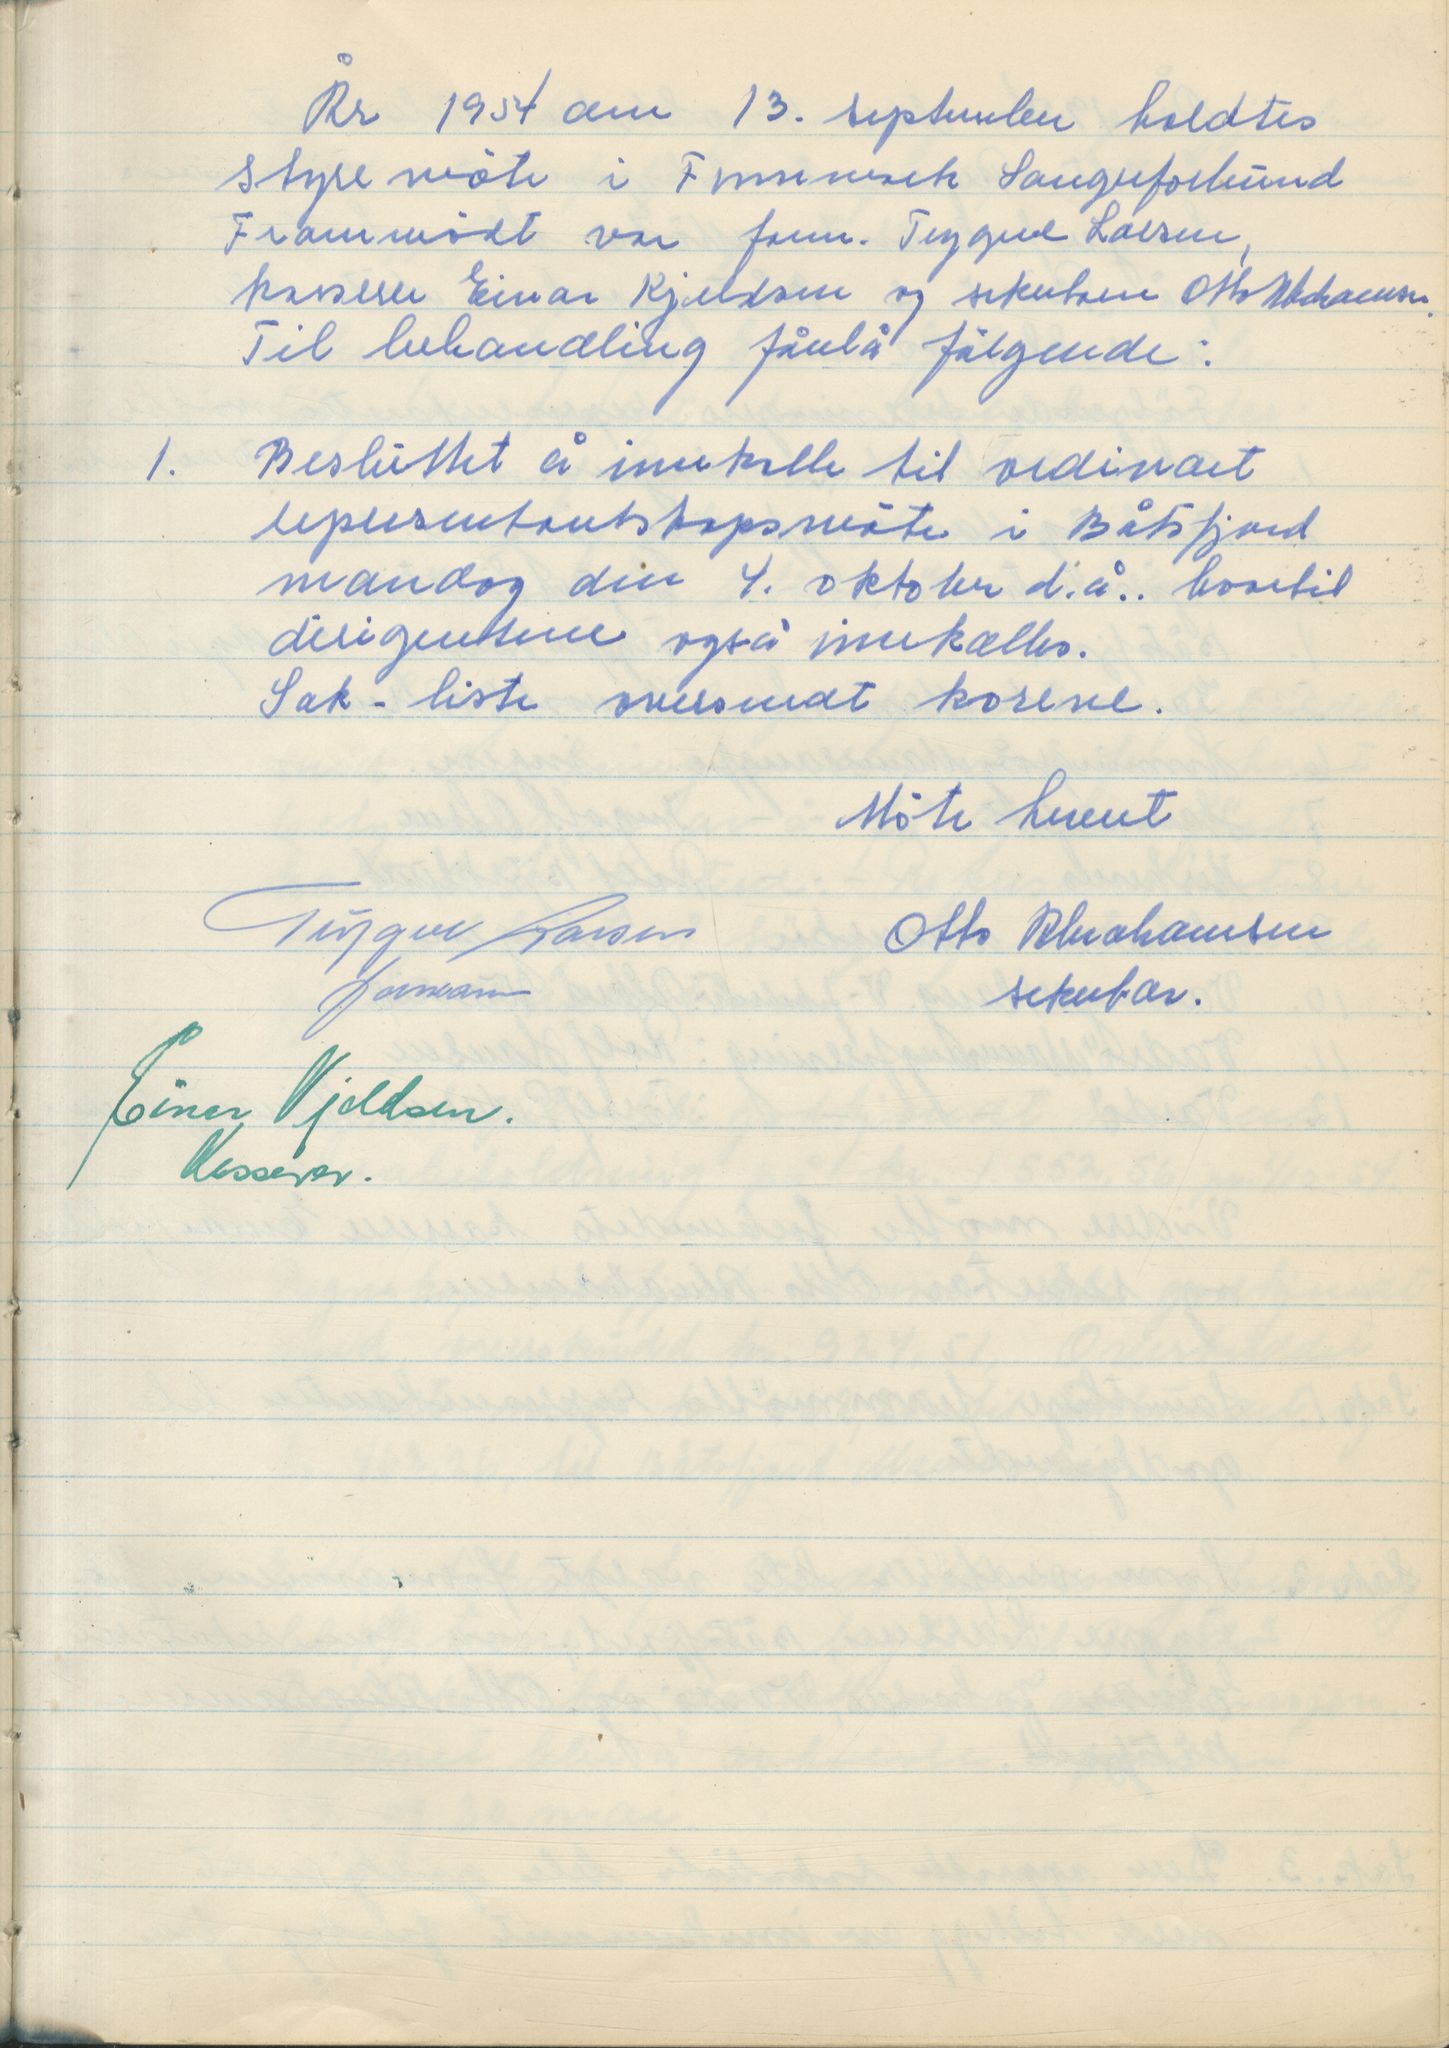 År 1954 den 13. september holdtes
styremöte i Finnmark Sangerforbund
Frammödt var form. Trygve Larsen,
kasserer Einar Kjeldsen og sekretær Otto Abrahamsen.
Til behandling forelå fölgende:
1. Besluttet å innkalle til ordinært
representantskapsmöte i Båtsfjord
mandag den 4. oktober d.å.. hvortil
dirigentene også innkalles.
Sak-liste oversendt korene.
Möte hevet
Trygve Larsen
formann
Otto Abrahamsen
sekretær.
Einar Kjeldsen.
Kasserer.